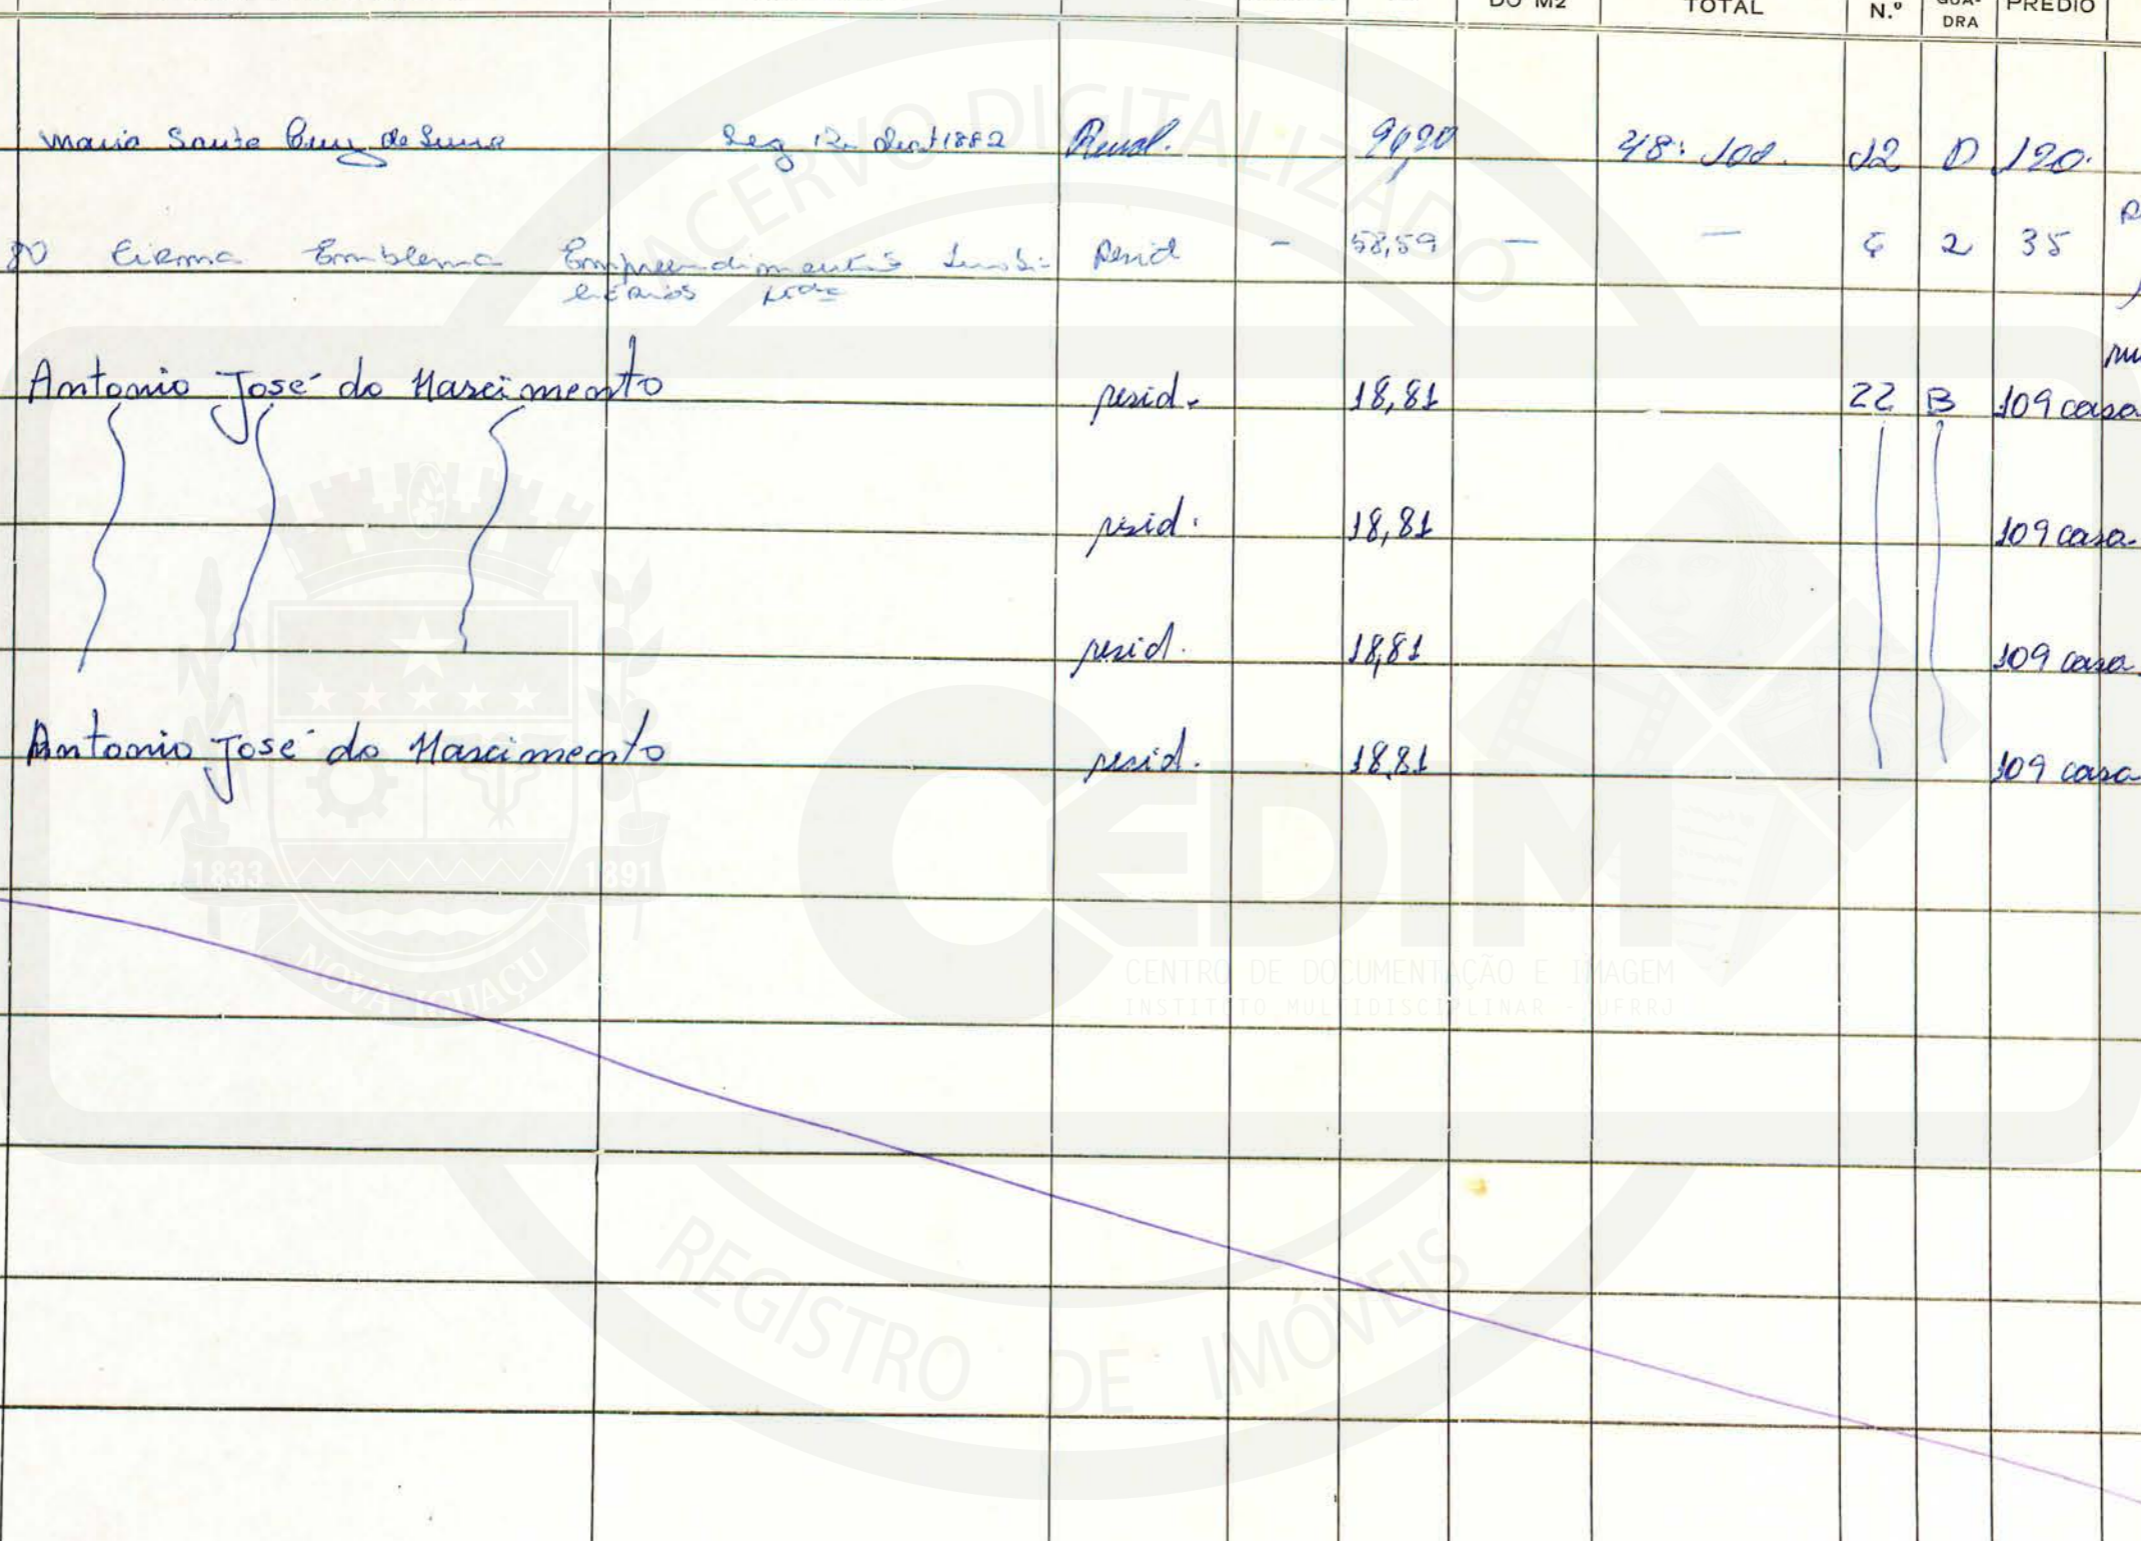 DO M2 TOTAL N.º QUA-DRA PREDIO
Maria Santa Cruz de 12 1882 48: 12 D 120.
Firma Emblema Empreendimentos Imobi- Resid - 58,59 — — 2 35
liários Ltda
Antonio José do Nascimento resid. 18,81 22 B 109 casa
resid. 18,81 109 casa
resid. 18,81 109 casa
Antonio José do Nascimento resid. 18,81 109 casa
ACERVO DIGITALIZADO
1833 1891
NOVA IGUAÇU
CEDIM
CENTRO DE DOCUMENTAÇÃO E IMAGEM
INSTITUTO MULTIDISCIPLINAR - UFRRJ
REGISTRO DE IMÓVEIS